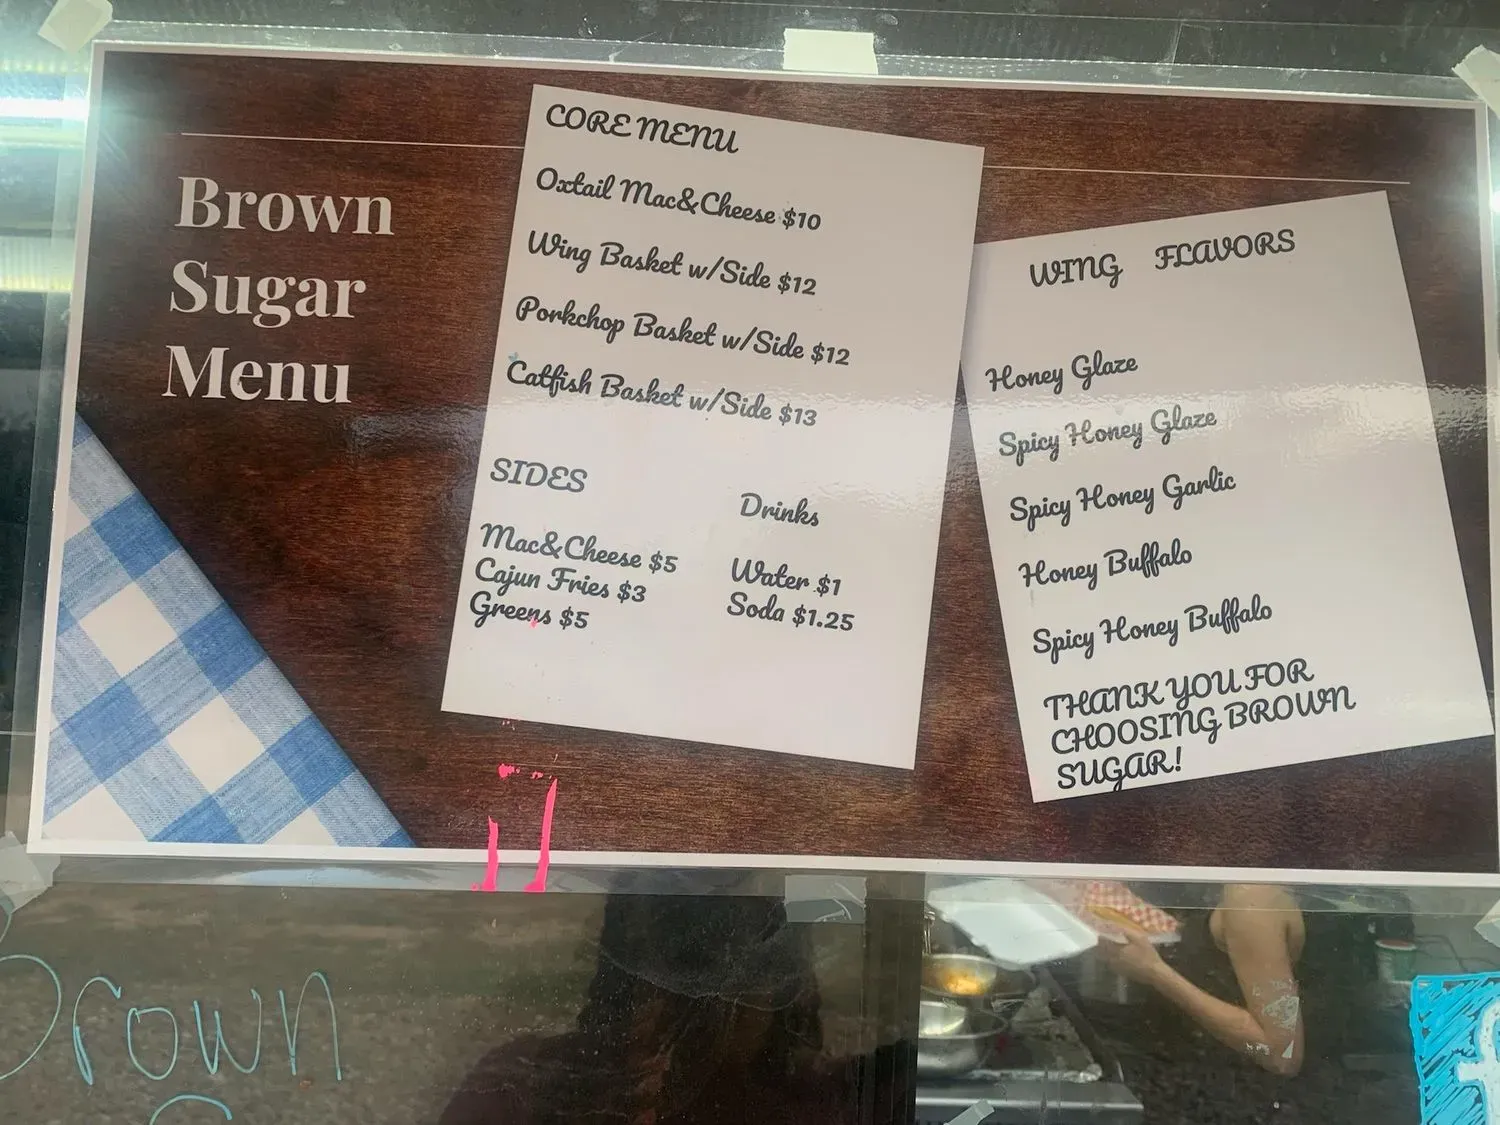 Brown
Sugar
Menu
CORE MENU
Oxtail Mac&Cheese $10
Wing Basket w/Side $12
Porkchop Basket w/Side $12
Catfish Basket w/Side $13
SIDES
Mac&Cheese $5
Cajun Fries $3
Greens $5
Drinks
Water $1
Soda $1.25
WING FLAVORS
Honey Glaze
Spicy Honey Glaze
Spicy Honey Garlic
Honey Buffalo
Spicy Honey Buffalo
THANK YOU FOR
CHOOSING BROWN
SUGAR!
Brown
f